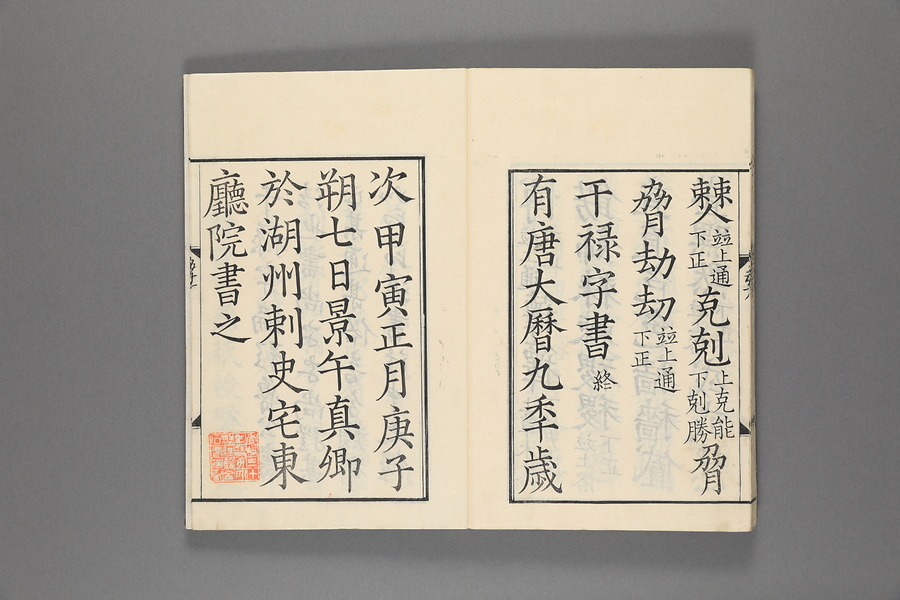 僰並上通下正克剋上克能下剋勝脅
脅劫刧並上通下正
干禄字書終
有唐大曆九秊歲
次甲寅正月庚子
朔七日景午真卿
於湖州刺史宅東
廳院書之